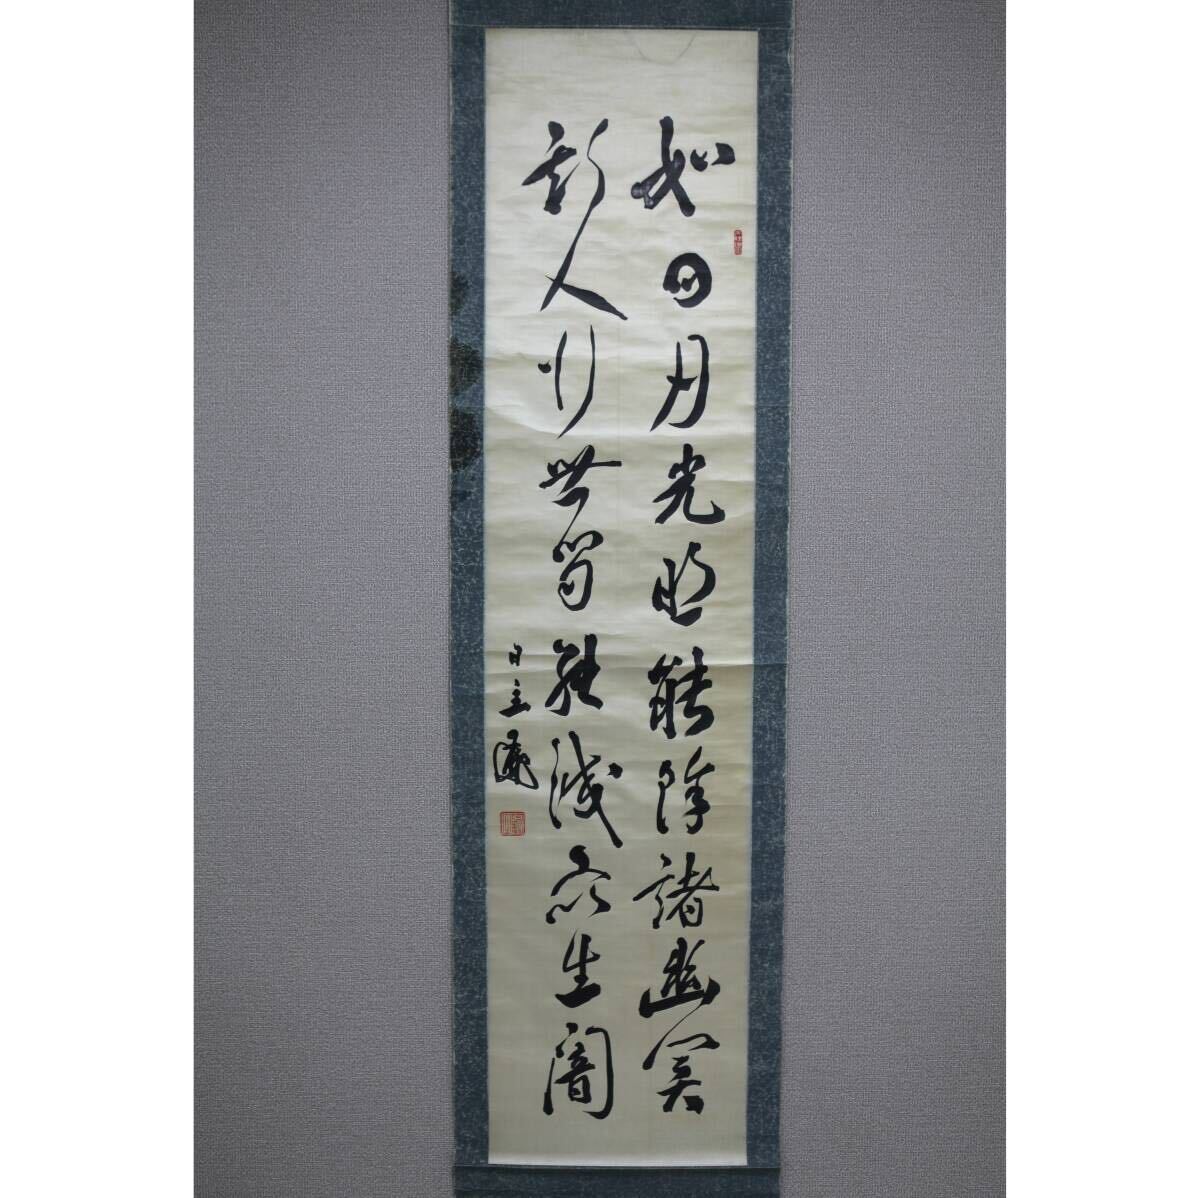 如日月光明能除諸幽冥
斯人行世間能滅衆生闇
日主